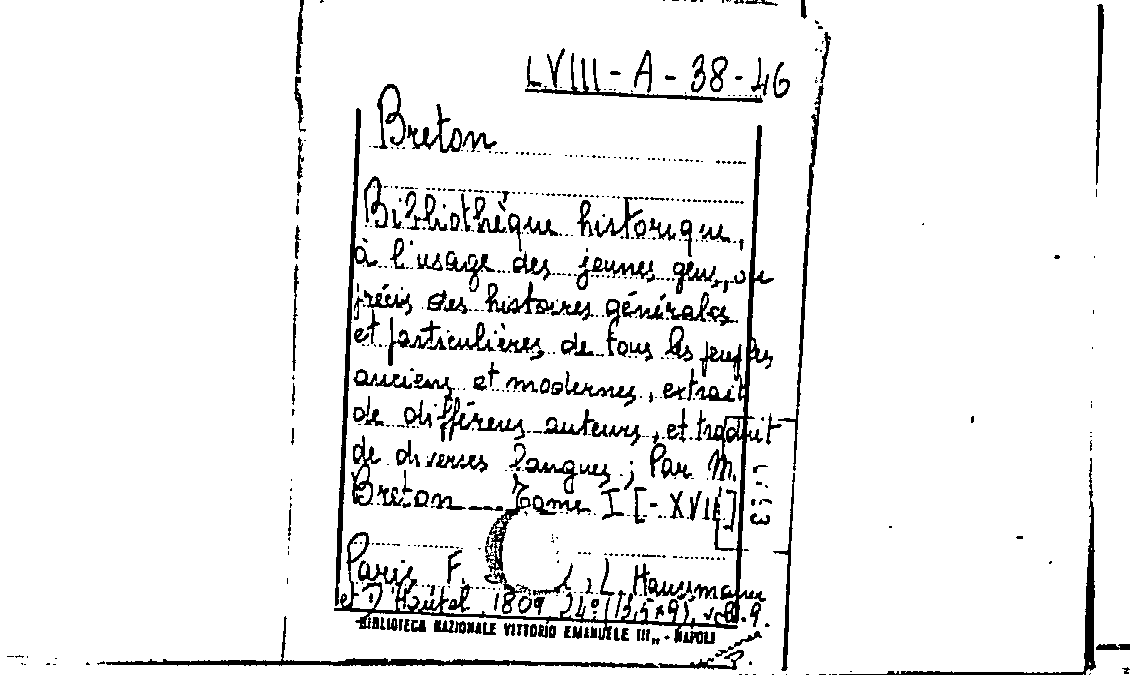 LVIII-A-38-46
Breton
Bibliothèque historique,
à l'usage des jeunes gens, ou
précis des histoires générales
et particulières de tous les peuples
anciens et modernes, extrait
de différens auteurs, et traduit
de diverses langues; Par M.
Breton Tome I [-XVII]
Paris, F. L. Haussmann
et D'Hautel 1809 24° (13,5x9), 9.
BIBLIOTECA NAZIONALE VITTORIO EMANUELE III„ - NAPOLI